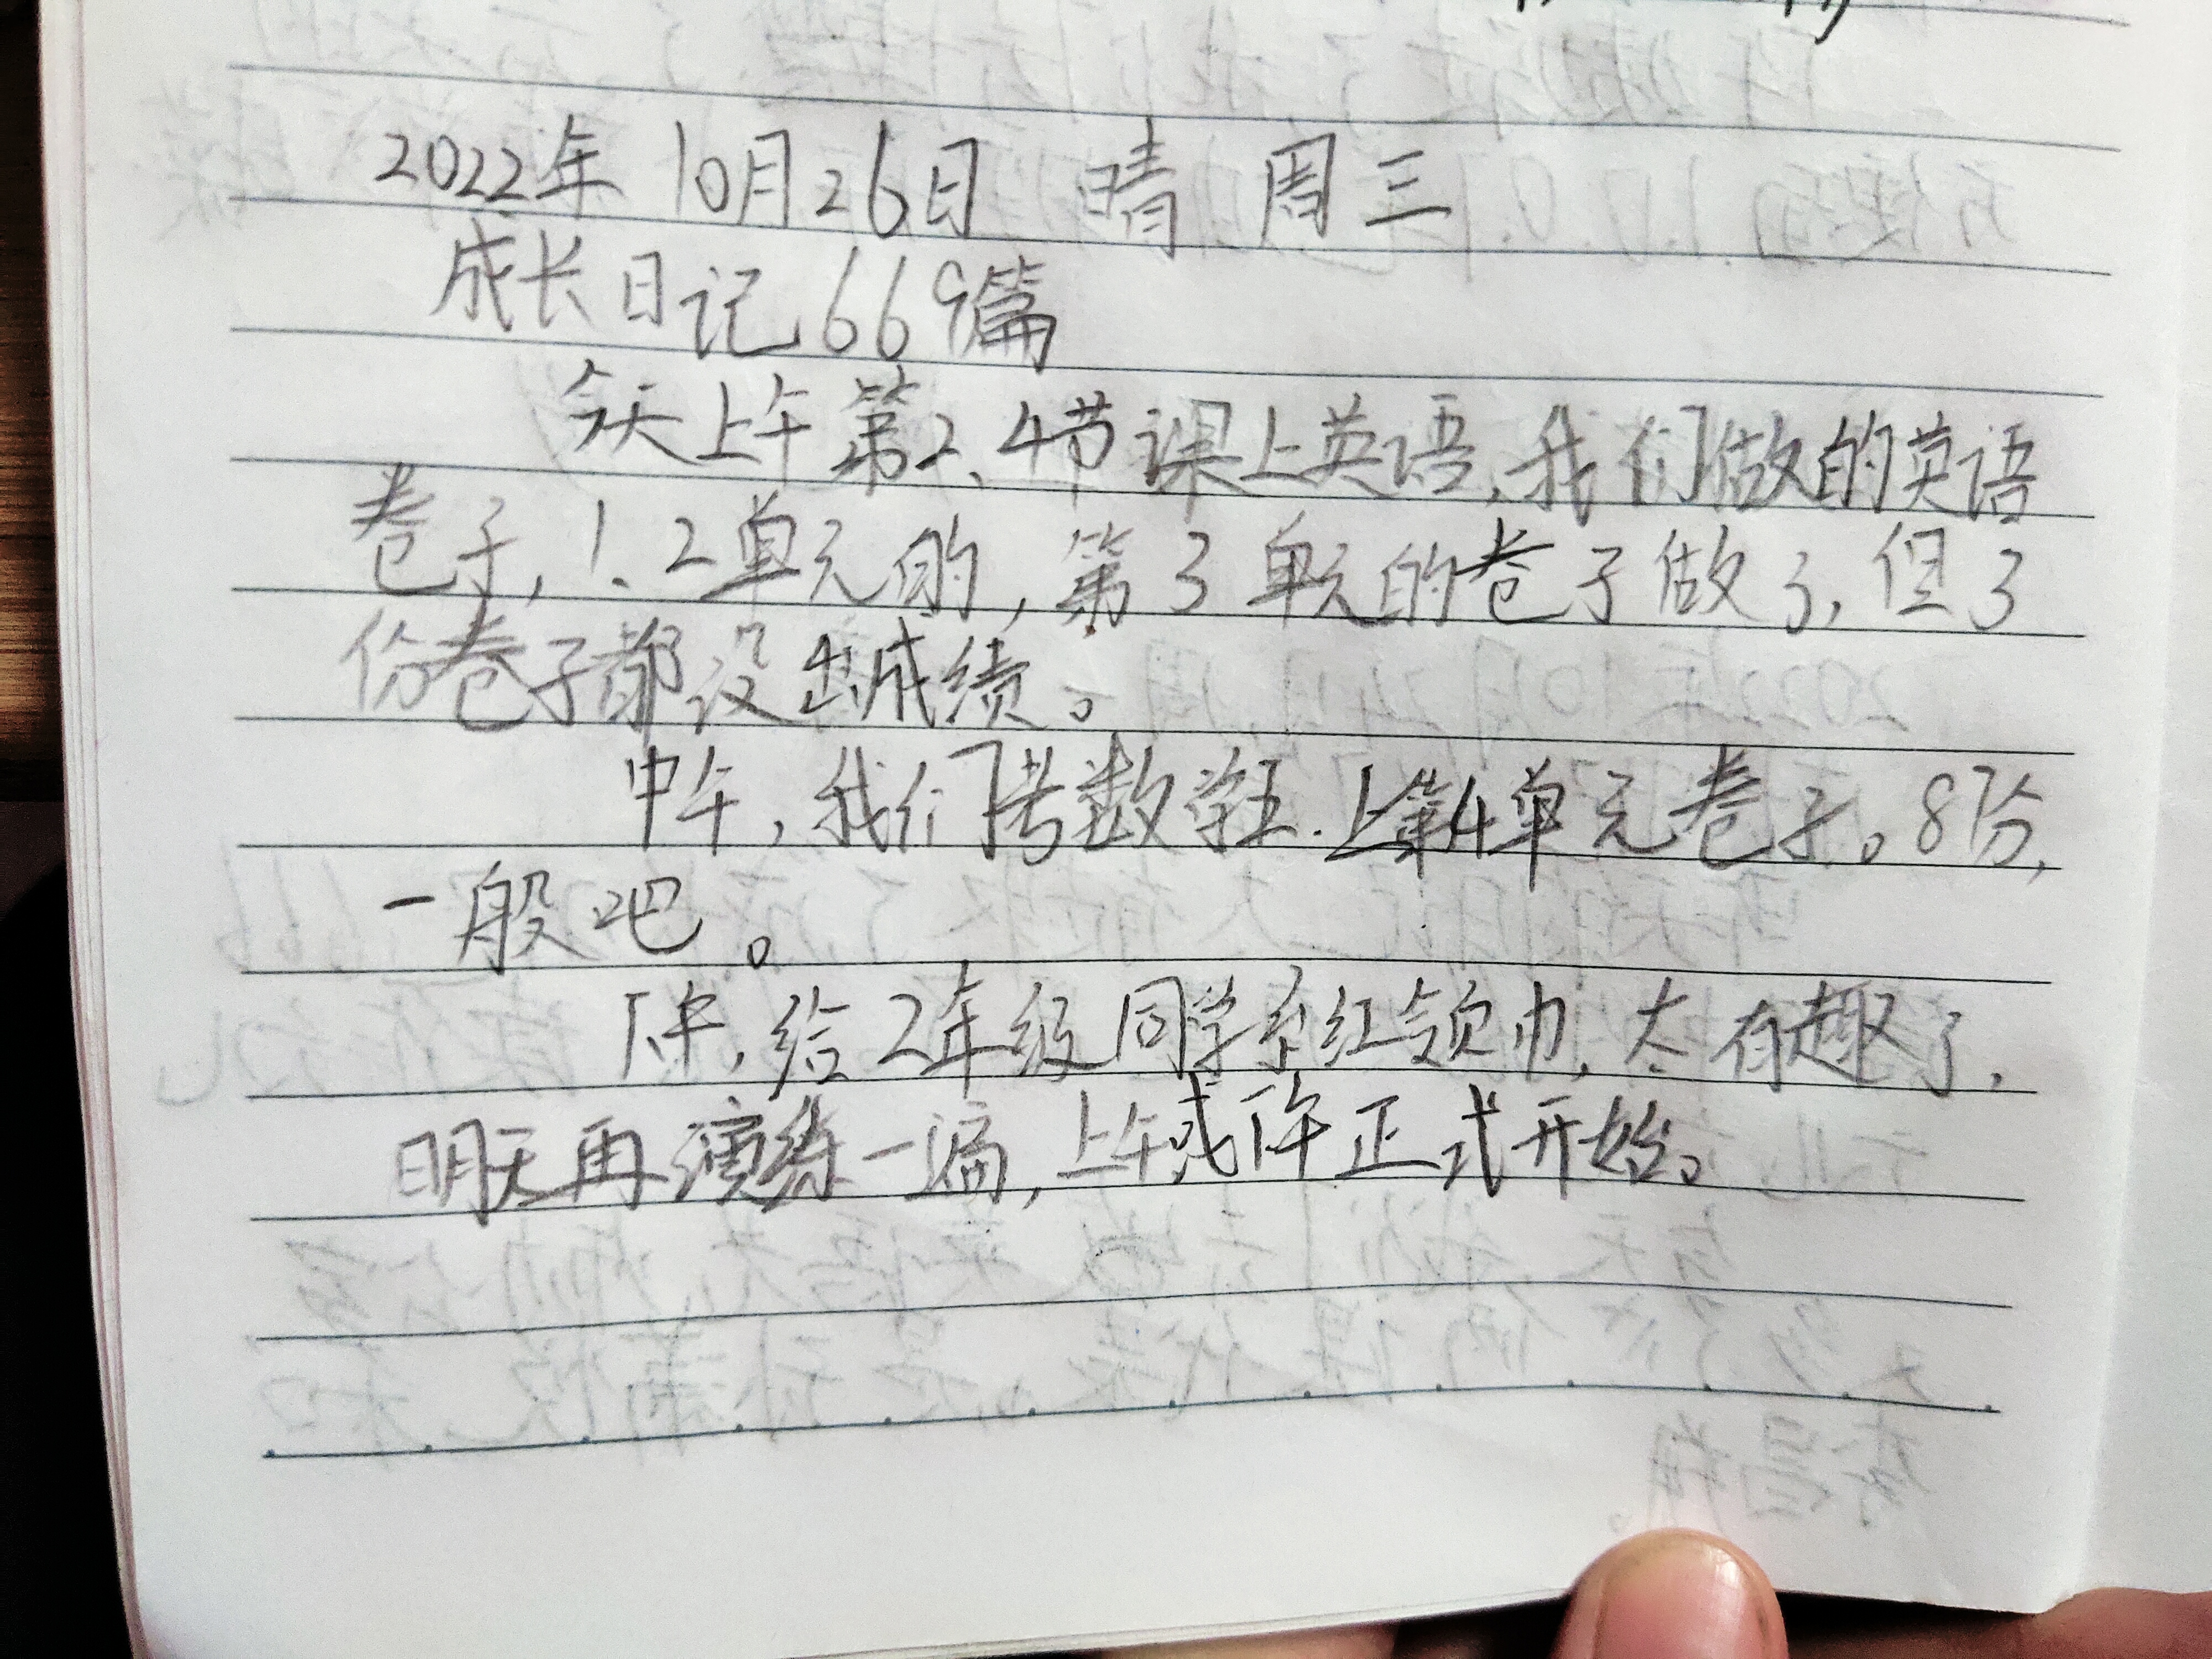 2022年 10月26日 晴 周三
成长日记669篇
今天上午第2、4节课上英语,我们做的英语
卷子,1、2单元的,第3单元的卷子做了,但3
份卷子都没出成绩。
中午,我们考数学五.上第4单元卷子。87分,
一般吧。
下午,给2年级同学系红领巾,太有趣了.
明天再演练一遍,上午或下午正式开始。